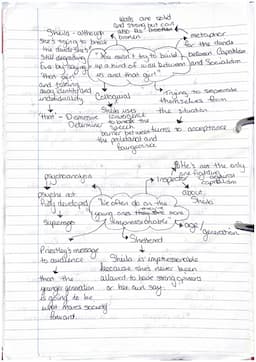 Walls are solid
and strong but can
also be broken
broken
Sheila - although
she's trying to break
the divide she's
still degrading
Eva by saying
"that girl"
and taking
away identity and
individuality
"You mustn't try to build
up a kind of wall between
us and that girl"
metaphor
for the divide
between Capitalism
and Socialism
Colloquial
trying to separate
themselves from
the situation
"that" - Dismissive
Determiner
Sheila uses
convergence
to break the
speech
barrier between
the proletariat and
bourgeoisie
turns to acceptance
psychoanalysis
psyche not
fully developed
Superego
Inspector
He's not the only
one fighting
against
capitalism
about
Sheila
"We often do on the
young ones they're more
impressionable"
age/
generation
Sheltered
Priestley's message
to audience
that the
younger generation
is going to be
what makes society
forward
Sheila is impressionable
because she's never been
allowed to have strong opinions
or her own say.